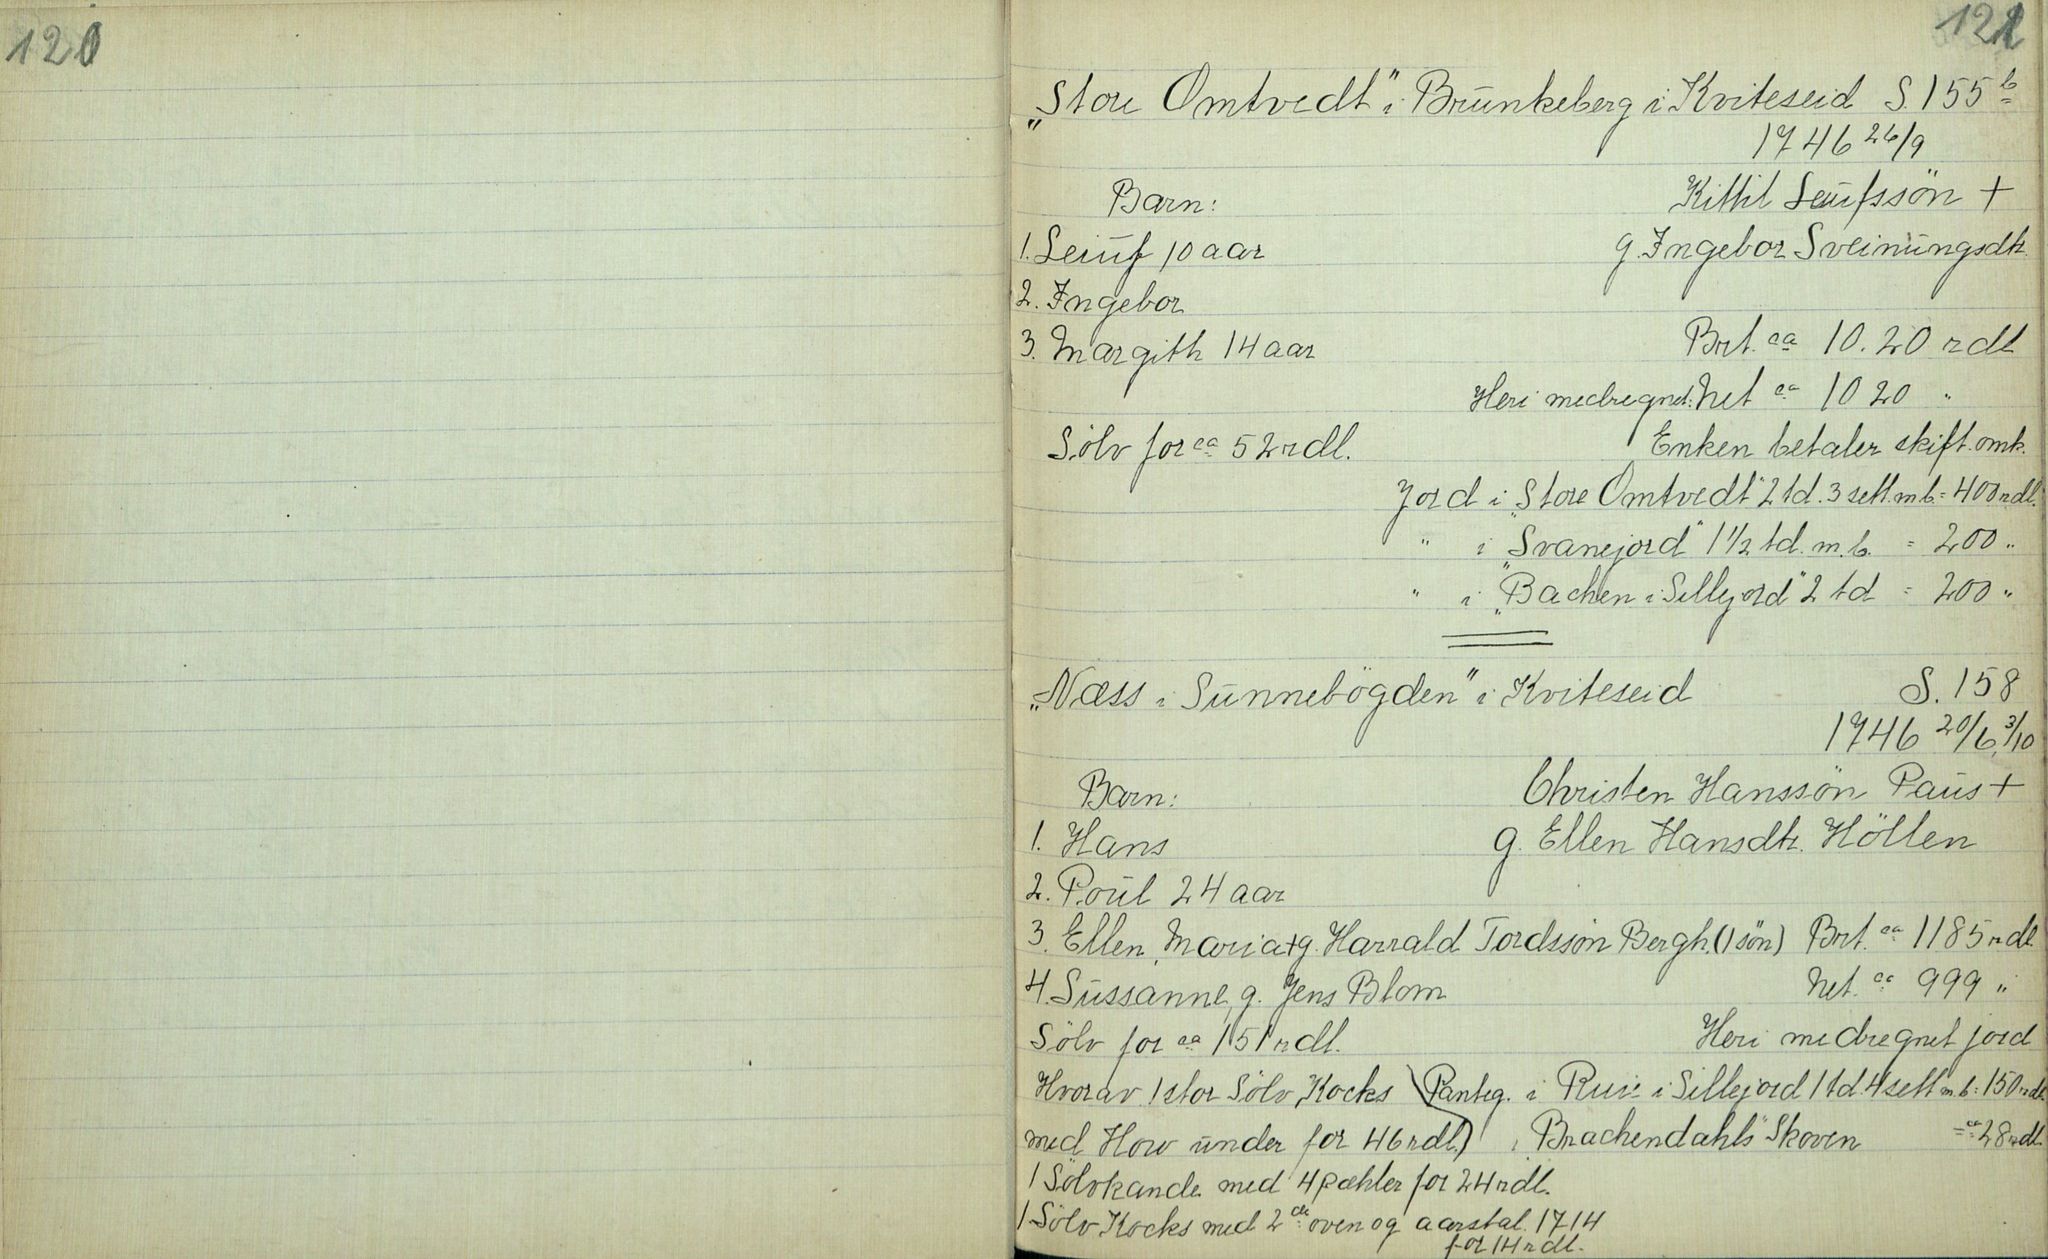 120
121
"Store Omtvedt" i Brunkeberg i Kviteseid S. 155 b
1746 26/9
Barn: Kittil Leiufssön +
1. Leiuf 10 aar g. Ingebor Sveinungsdtr.
2. Ingebor
3. Margith 14 aar Brt. ca 10.20 rdl
Heri medregnet: Net ca 1020 "
Sölv for ca 52 rdl. Enken betaler skift. omk.
Jord i "Store Omtvedt" 2 td. 3 sett. m b. = 400 rdl.
" i "Svanejord" 1 1/2 td. m. b. = 200 "
" i "Bachen i Sillejord" 2 td = 200 "
"Næss i Sunnebögden" i Kviteseid S. 158
1746 20/6, 3/10
Barn: Christen Hanssön Paus +
1. Hans g. Ellen Hansdtr. Höllen
2. Poul 24 aar
3. Ellen Maria + g. Harrald Tordssön Bergh. (1 sön) Brt. ca 1185 rdl.
4. Sussanne, g. Jens Blom Net. ca 999 "
Sölv for ca 151 rdl. Heri medregnet jord
Hvorav 1 stor Sölv Kocks Panteg. i Rui i Sillejord 1 td. 4 sett m. b. = 150 rdl.
med How under for 46 rdl.) i "Brachendahls" Skoven = ca 28 rdl.
1 Sölvkande med 4 pæhler for 24 rdl.
1 Sölv Kocks med 2de oven og aarstal 1714
for 14 rdl.